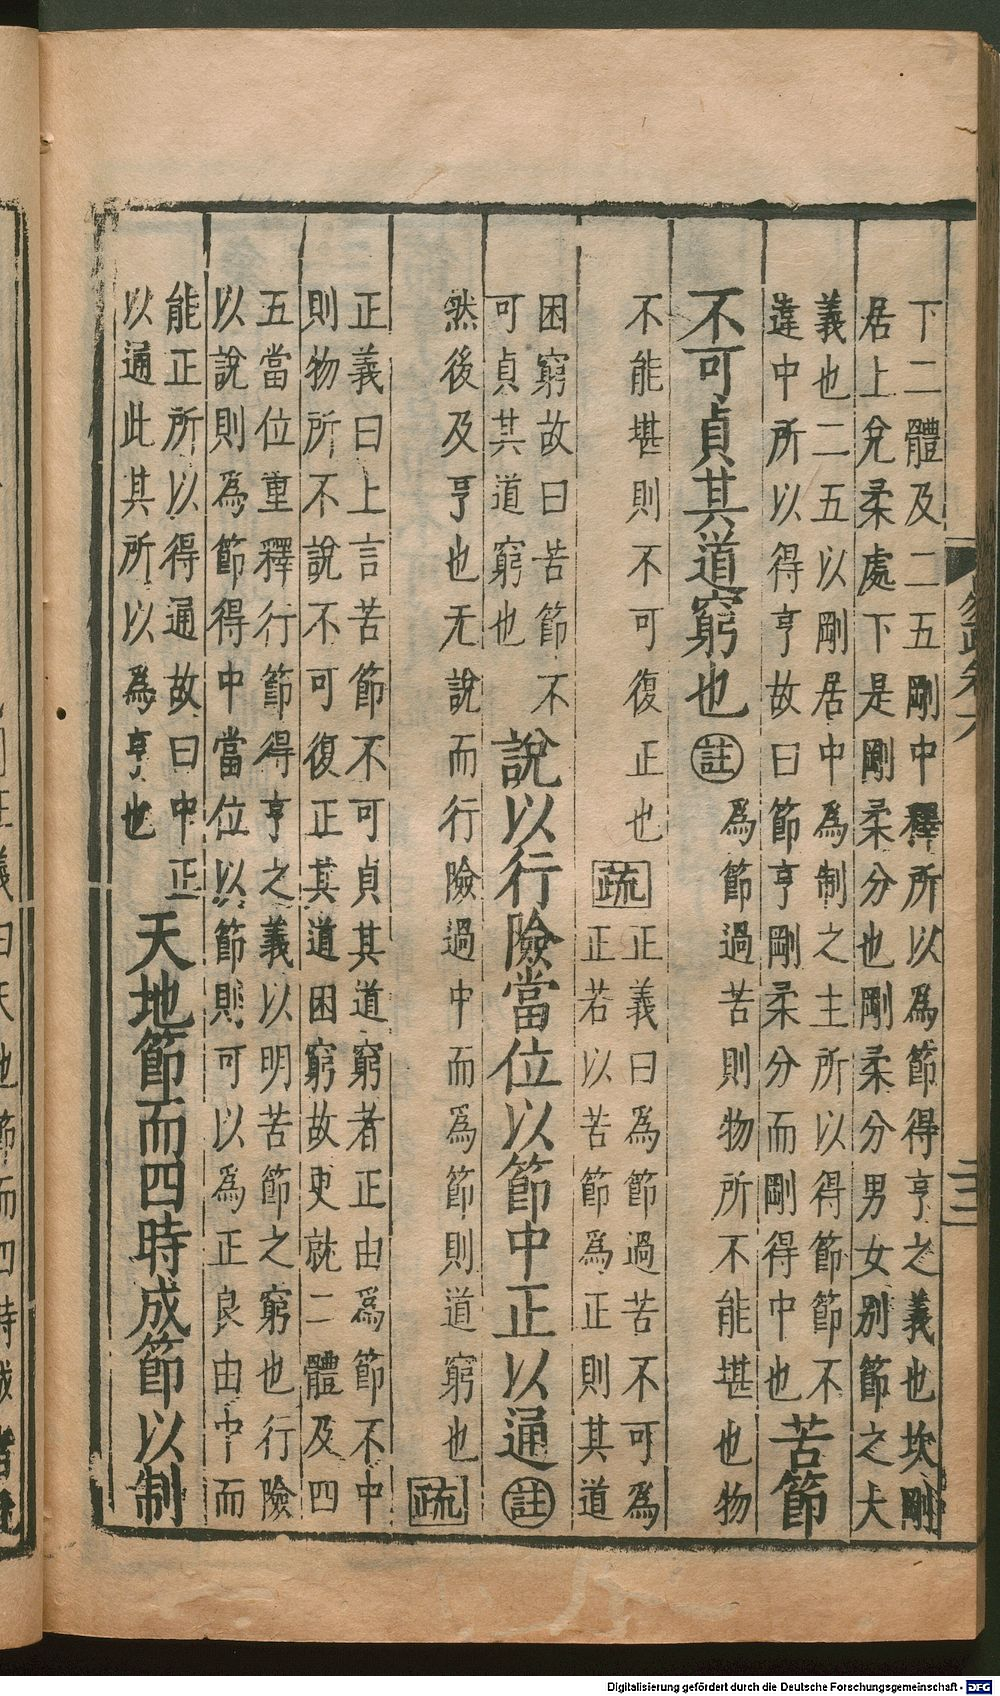 下二體及二五剛中釋所以為節得亨之義也坎剛
居上兌柔處下是剛柔分也剛柔分男女別節之大
義也二五以剛居中為制之主所以得節節不
違中所以得亨故曰節亨剛柔分而剛得中也
苦節
不可貞其道窮也
註
為節過苦則物所不能堪也物
不能堪則不可復正也
疏
正義曰為節過苦不可為
正若以苦節為正則其道
困窮故曰苦節不
可貞其道窮也
說以行險當位以節中正以通
註
然後及亨也无說而行險過中而為節則道窮也
疏
正義曰上言苦節不可貞其道窮者正由為節不中
則物所不說不可復正其道困窮故更就二體及四
五當位重釋行節得亨之義以明苦節之窮也行險
以說則為節得中當位以節則可以為正良由中而
能正所以得通故曰中正
以通此其所以為亨也
天地節而四時成節以制
Digitalisierung gefördert durch die Deutsche Forschungsgemeinschaft - DFG